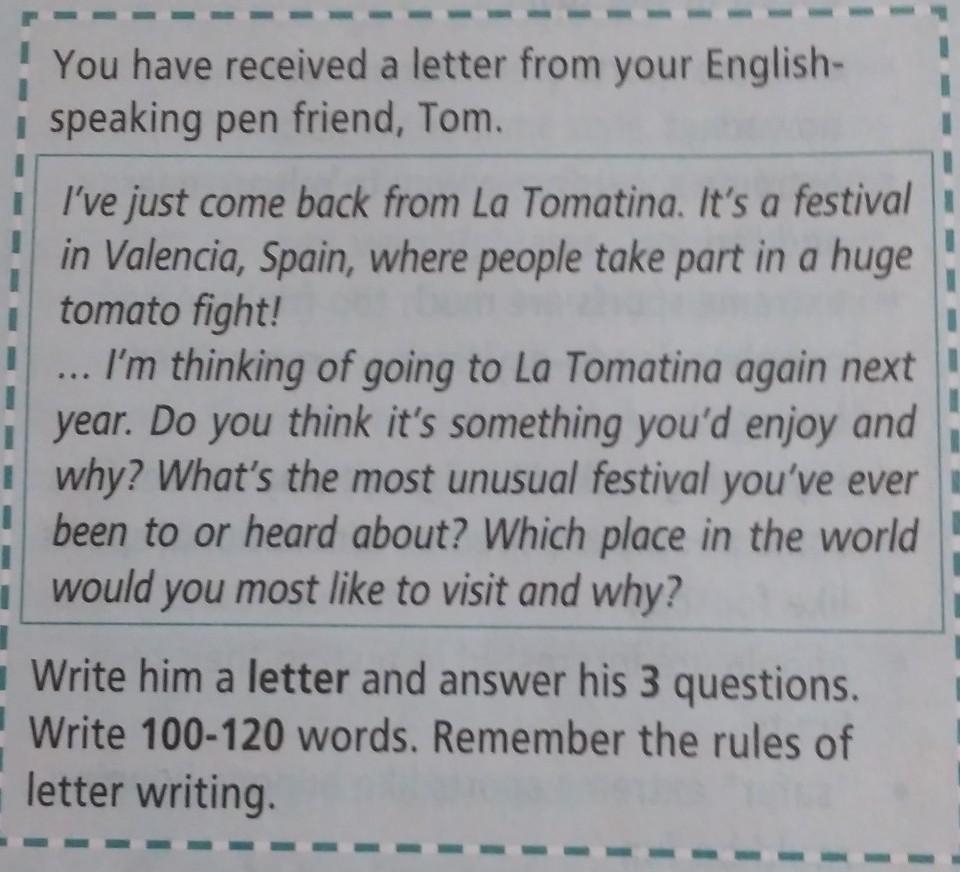 You have received a letter from your English-
speaking pen friend, Tom.
I've just come back from La Tomatina. It's a festival
in Valencia, Spain, where people take part in a huge
tomato fight!
... I'm thinking of going to La Tomatina again next
year. Do you think it's something you'd enjoy and
why? What's the most unusual festival you've ever
been to or heard about? Which place in the world
would you most like to visit and why?
Write him a letter and answer his 3 questions.
Write 100-120 words. Remember the rules of
letter writing.